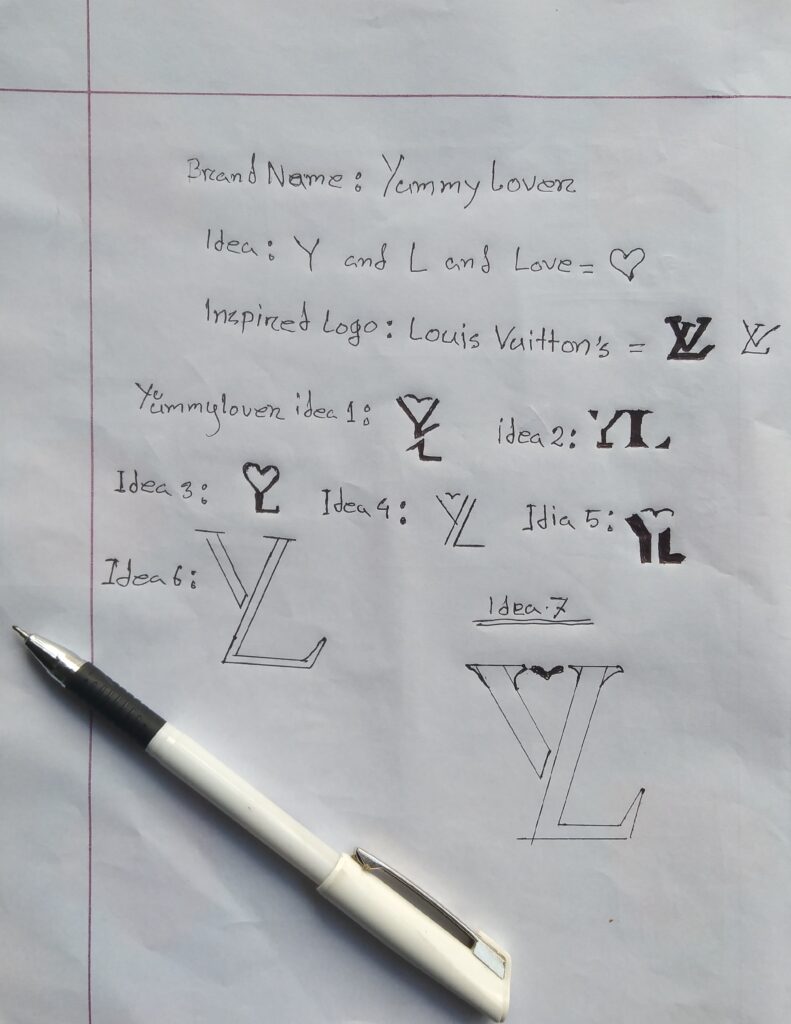 Brand Name: Yummy Lover
Idea: Y and L and Love = ♡
Inspired Logo: Louis Vuitton's = LV LV
Yummylover idea 1: YL idea 2: YL
Idea 3: YL Idea 4: YL Idia 5: YL
Idea 6: YL
Idea.7
YL